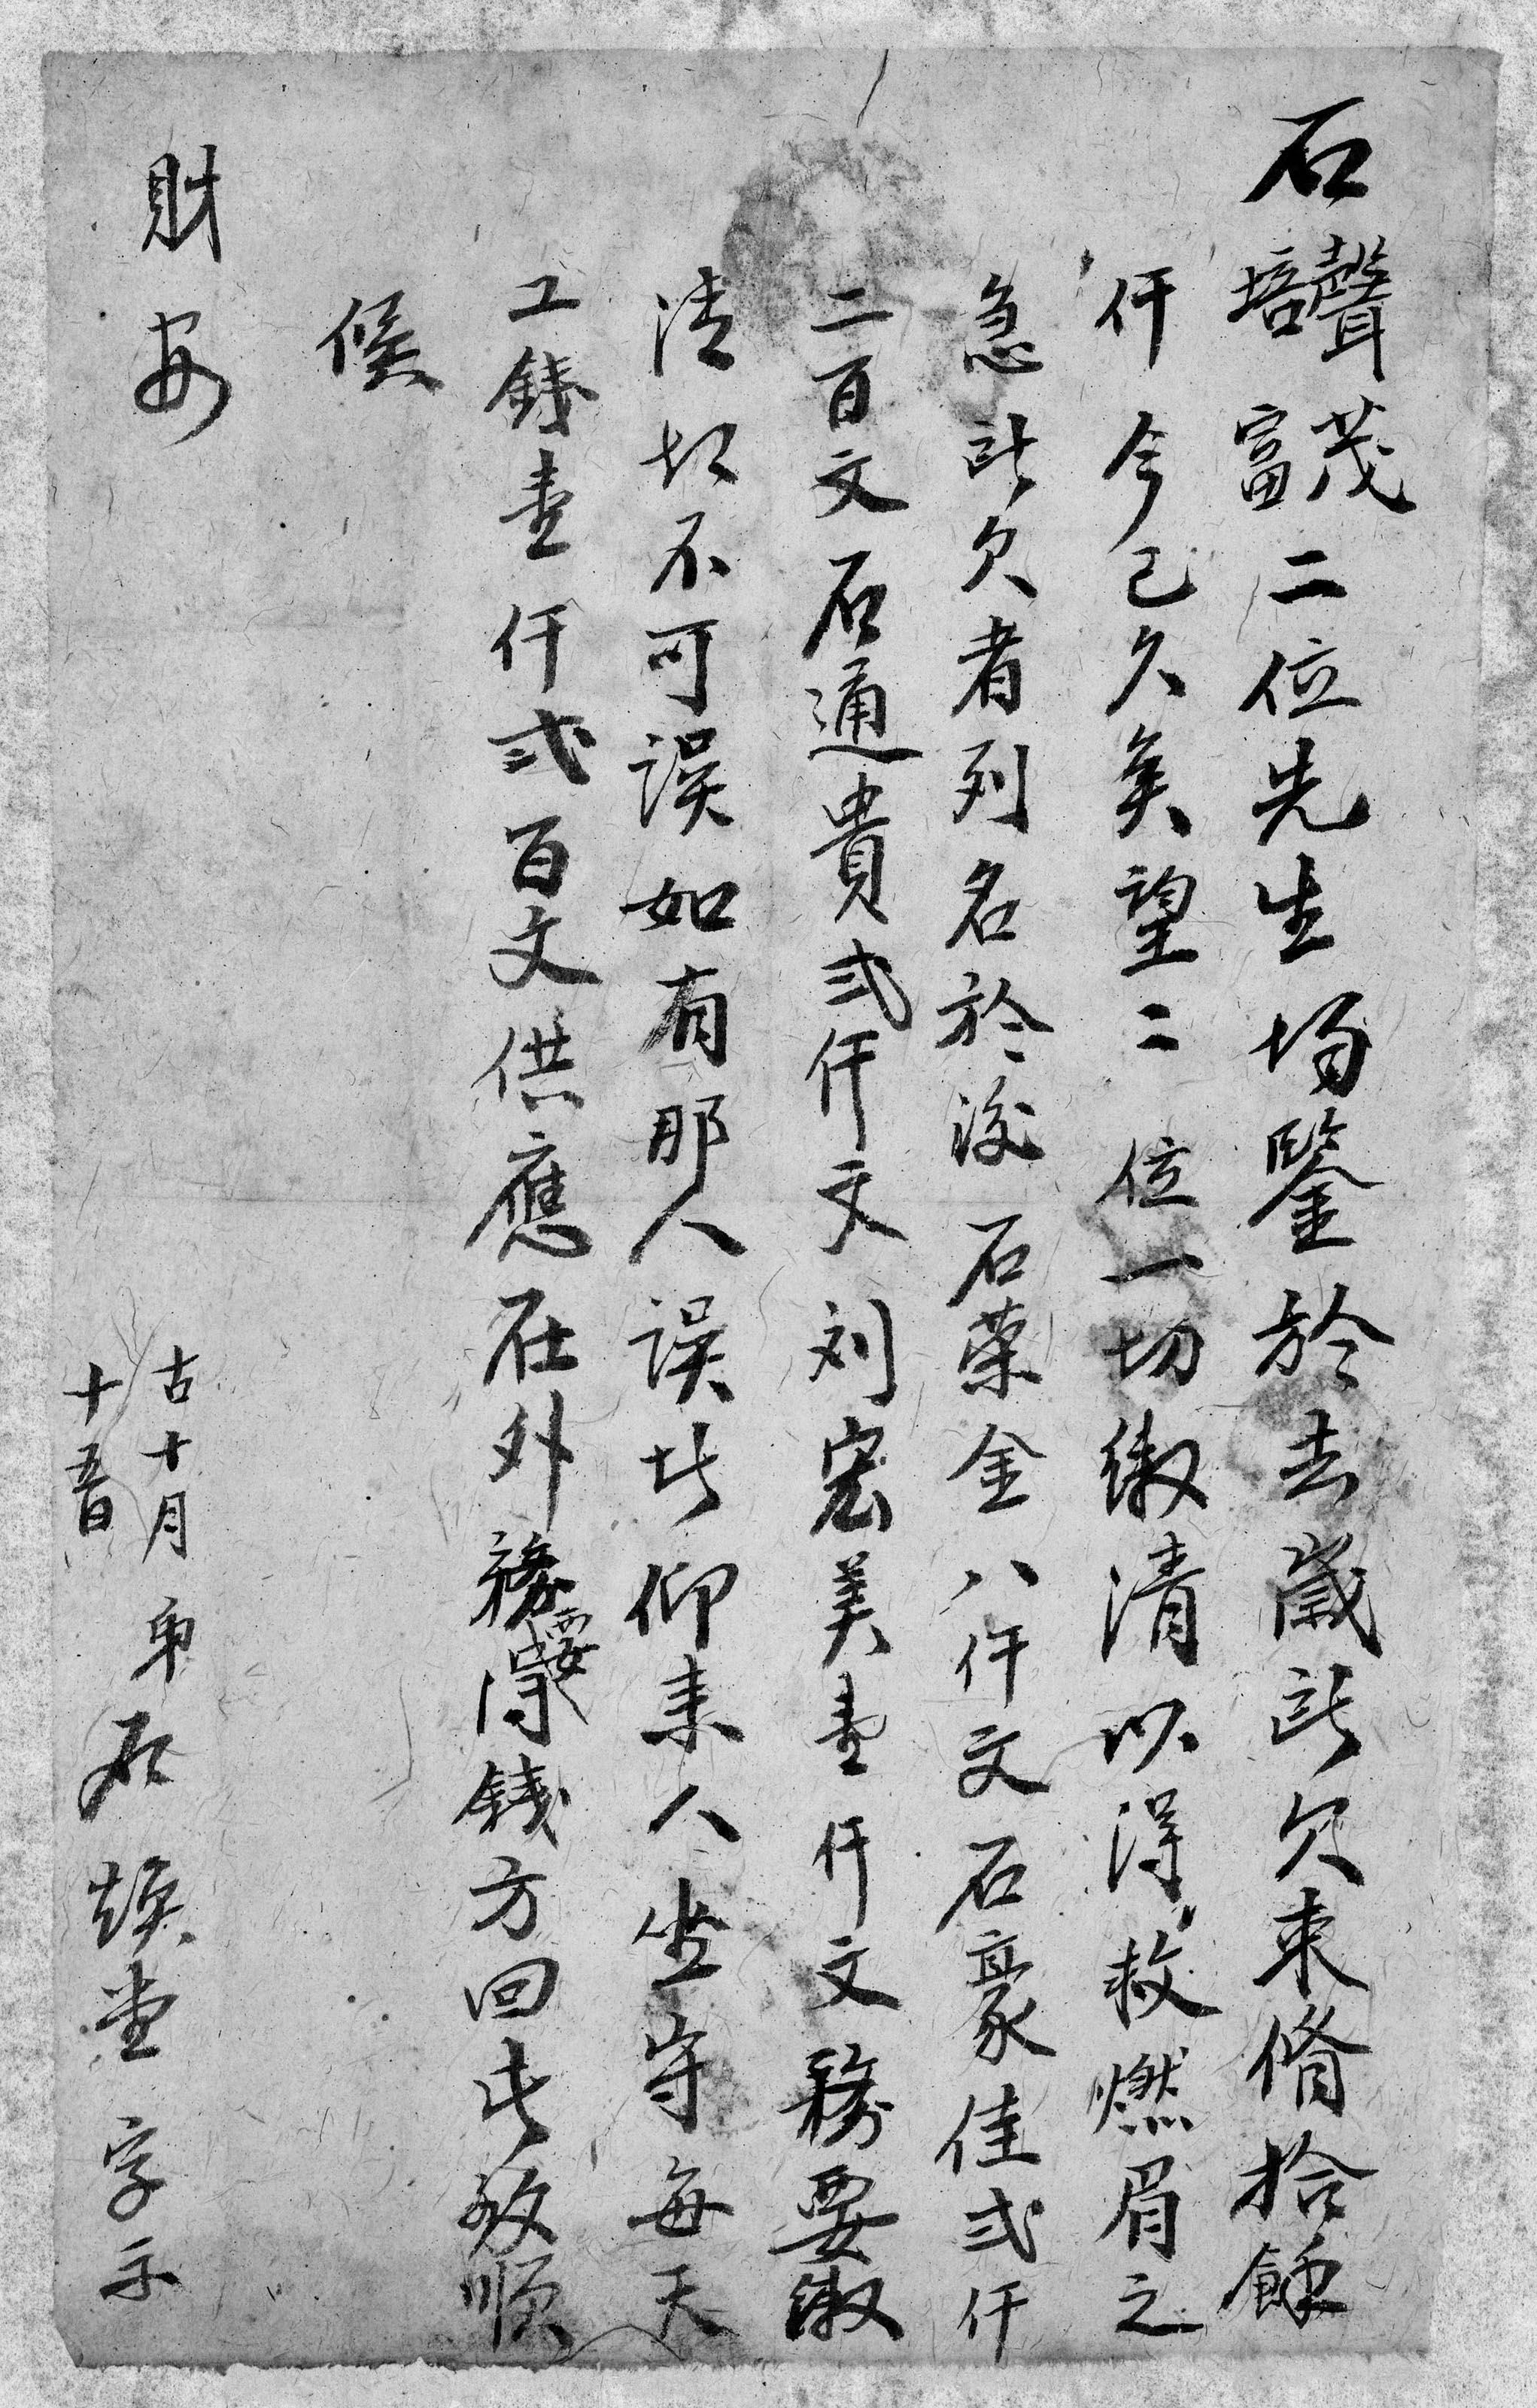 石聲茂培富二位先生均鑒於去歲所欠束脩拾餘
仟今已久矣望二位一切繳清以得救燃眉之
急所欠者列名於後石荣金八仟文石豪佳弍仟
二百文石通貴弍仟文刘宏美壹仟文務要繳
清切不可误如有那人误者仰来人坐守每天
工錢壹仟弍百文供應在外務要得錢方回此致順
候
財安
古十月
十五日
弟石焕堂字示